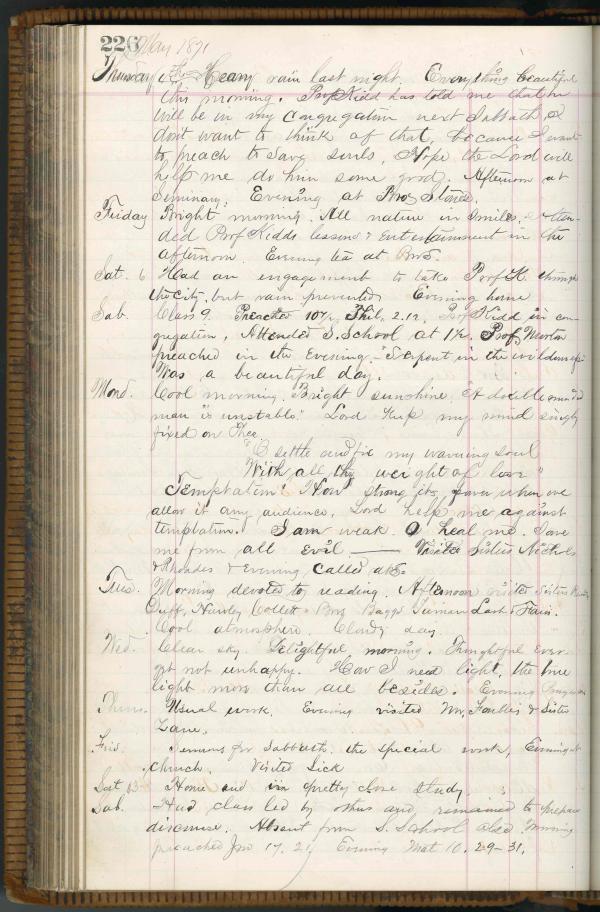 226 May 1871
Thursday 4th Heavy rain last night. Everything beautiful
this morning. Prof Kidd has told me that he
will be in my congregation next Sabbath. I
dont want to think of that, because I want
to preach to save souls. Hope the Lord will
help me do him some good. Afternoon at
Seminary. Evening at Bro Stones.
Friday Bright morning. All nature in smiles. Atten-
ded Prof Kidds lessons & entertainment in the
afternoon. Evening tea at Bro
Sat. 6 Had an engagement to take Prof K. through
the city, but rain prevented. Evening home
Sab. Class 9. Preached 10½, Phil. 2.12. Prof Kidd in con-
gregation. Attended S. School at 1½. Prof
preached in the Evening. "Serpent in the wilderness"
Was a beautiful day.
Mond. Cool morning. Bright sunshine. "A double minded
man is unstable." Lord keep my mind singly
fixed on Thee.
"O settle and fix my wavering soul
With all thy weight of love"
Temptation! How strong its power when we
allow it any audience. Lord help me against
temptation. I am weak. O heal me. Save
me from all evil — Visited Sisters Nichols
& Rhoades & Evening called at
Tues. Morning devoted to reading. Afternoon visited Sisters
Cuff, Hawley Collett & Bros Baggs & Fair.
Cool atmosphere. Cloudy day
Wed. Clear sky. Delightful morning. Thoughtful ever-
yet not unhappy. How I need light, the true
light more than all besides. Evening Prayer
Thurs. Usual work. Evening visited Mr. & Sister
Lane.
Frid. Sermons for Sabbath the special work, Evening at
church. Visited Sick
Sat 13 Home and in pretty close study.
Sab. Had class led by others and remained to prepare
discourse. Absent from S. School also. Morning
preached Jno 17. 21 Evening Mat 10. 29-31.